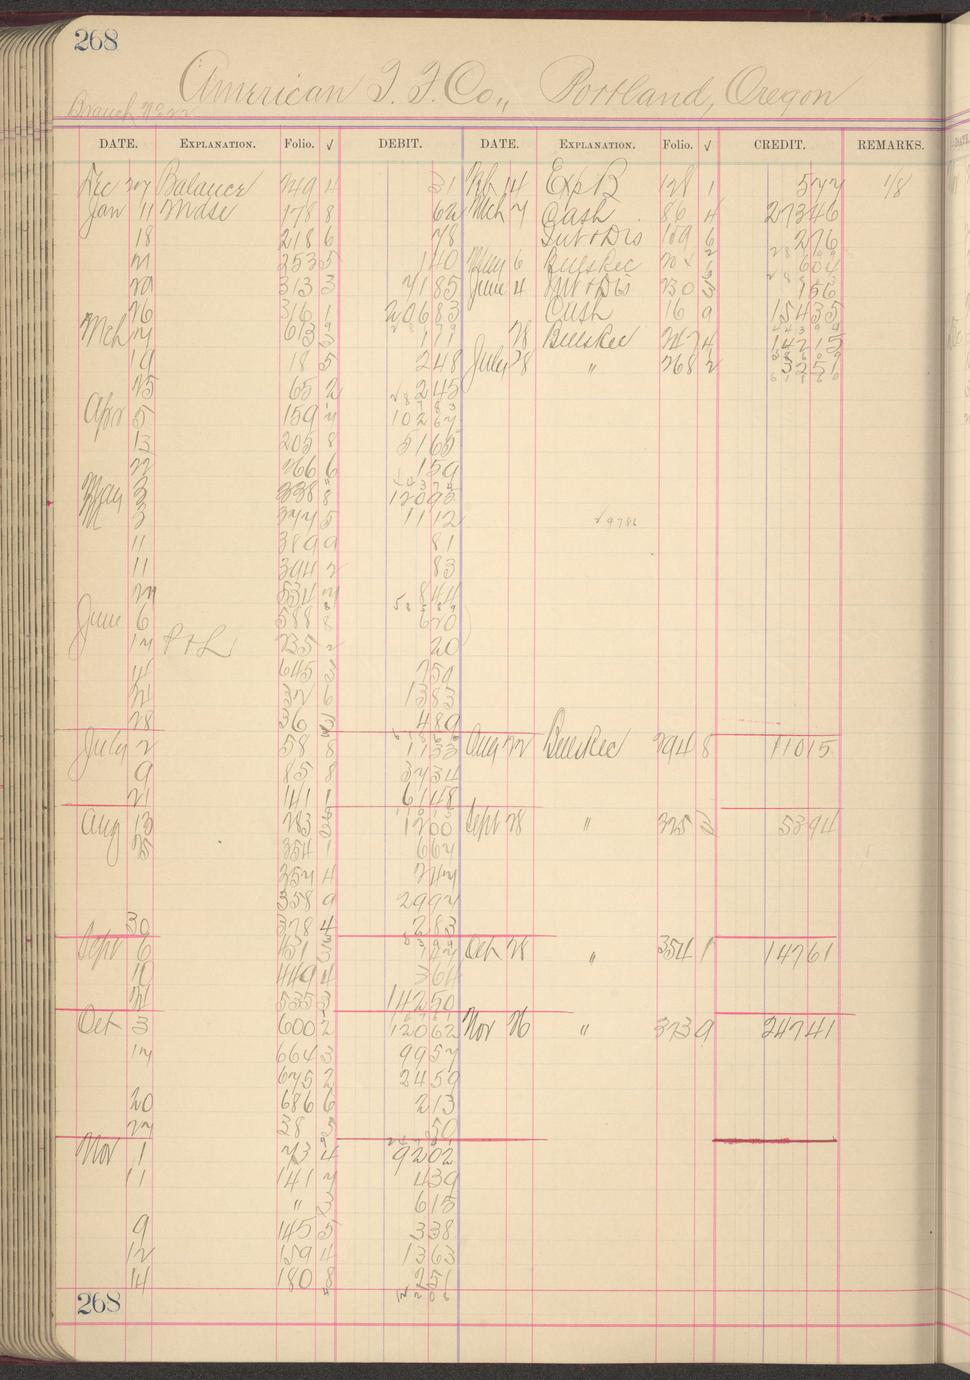 268
American T. F. Co., Portland, Oregon
Branch No 22
DATE. EXPLANATION. Folio. √ DEBIT. DATE. EXPLANATION. Folio. √ CREDIT. REMARKS.
Dec 27 Balance 249 4 31 Feb 14 Exp B 128 1 577 1/8
Jan 11 Mdse 178 8 62 Mch 7 Cash 86 4 27346
18 218 6 78 Int + Dis 109 6 276
21 253 5 140 May 6 BillsRec 604
29 313 3 7185 June 4 Int + Dis 230 3 156
26 316 1 20683 Cash 16 9 15435
Mch 7 613 171 28 BillsRec 247 4 14215
19 18 5 248 July 28 " 268 2 3251
25 65 2 245
Apr 5 159 10267
13 205 8 5165
22 266 6 159
May 3 338 8 12095
3 377 5 1112
11 389 9 81
11 394 2 83
27 534 7 844
June 6 588 8 670
17 P + L 235 2 20
14 645 3 759
21 37 6 1383
28 36 3 489
July 2 58 8 1133 Aug 22 BillsRec 294 8 11015
9 85 8 3734
21 141 1 6148
Aug 13 283 1200 Sept 28 " 325 3 5394
25 354 1 667
357 4 747
358 9 2997
30 378 4 283
Sept 6 151 3 747 Oct 28 " 354 1 14761
10 449 4 364
21 535 3 14250
Oct 3 600 2 12062 Nov 26 " 373 9 24741
17 664 3 9957
675 2 2459
20 686 6 213
27 38 5 50
Nov 1 73 4 9202
11 141 7 439
" 3 615
9 145 5 338
12 159 4 1363
14 180 8 251
268